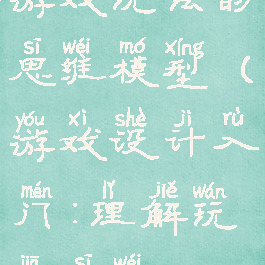 游戏玩法的
sī wéi mó xíng
思维模型（
yóu xì shè jì rù
游戏设计入
mén lǐ jiě wán
门：理解玩
jiā sī wéi